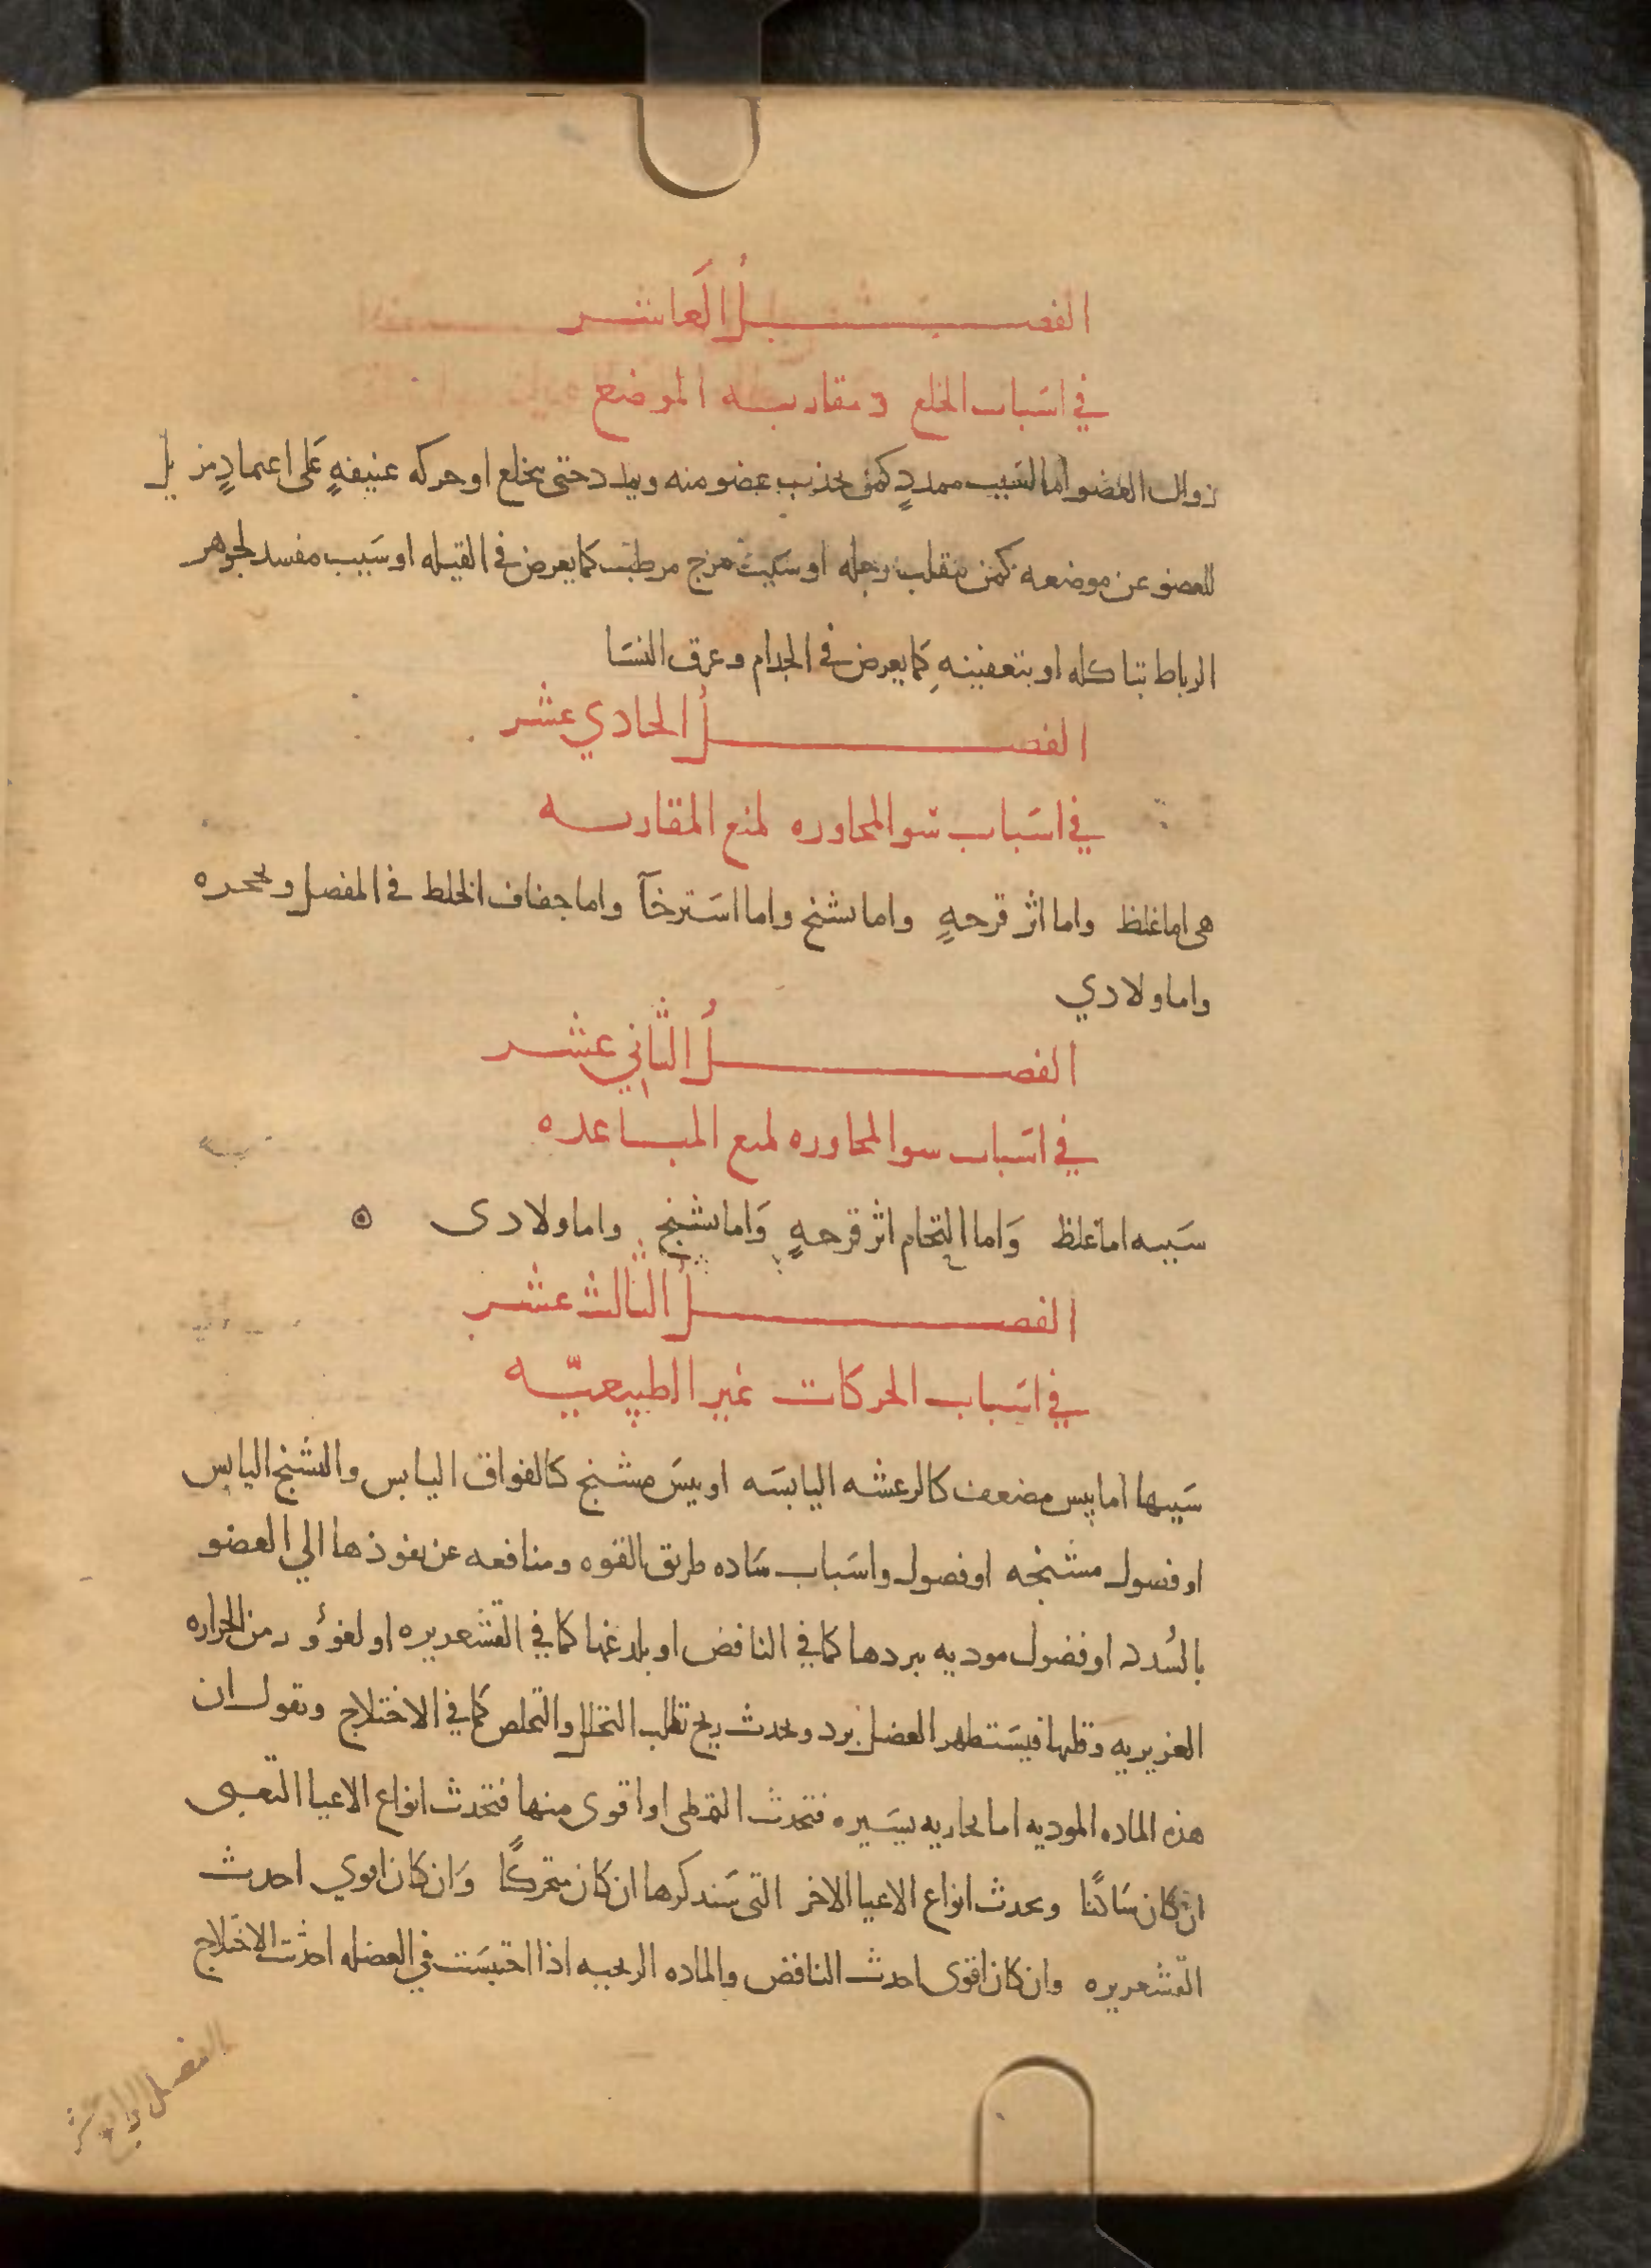 الفصل العاشر
في اسباب الخلع ومقاربه الموضع
زوال العضو اما لسبب ممددٍ كمن يجذب عضو منه ويمدد حتى يخلع او حركه عنيفهٍ على اعتمادٍ مزيل
للعضو عن موضعه كمن تنقلب رجله او سبب مرخ مرطب كما يعرض في القيله او سبب مفسد لجوهر
الرباط بتاكله او بتعفينه كما يعرض في الجدام وعرق النسا
الفصل الحادي عشر
في اسباب سو المجاوره لمنع المقاربه
هى اما غلظ واما اثر قرحهٍ واما تشنج واما استرخآ واما جفاف الخلط في المفصل وتحجره
واما ولادي
الفصل الثاني عشر
في اسباب سو المجاوره لمنع المباعده
سببه اما غلظ واما التحام اثر قرحهٍ واما تشنج واما ولادى
الفصل الثالث عشر
في اسباب الحركات غير الطبيعيّه
سببها اما يبس مضعف كالرعشه اليابسه او يبس مشنج كالفواق اليابس والتشنج اليابس
او فصول مشنجه او فصول واسباب ساده طريق القوه ومنافعه عن نفوذها الي العضو
بالسُدد او فضول موديه ببردها كما في النافض او بلدغها كما في القشعريره او لغؤور من الحراره
الغزيريه وقلتها فيستظهر العضل برد ويحدث ريح تطلب التحلل والتخلص كما في الاختلاج ونقول ان
هذه الماده الموديه اما بخاريه يسيره فتحدث التمطى او اقوى منها فتحدث انواع الاعيا التعبى
ان كان ساكنًا ويحدث انواع الاعيا الاخر التى سندكرها ان كان متحركًا وان كان اقوي احدث
القشعريره وان كان اقوى احدث النافض والماده الريحيه اذا احتبست في العضله احدثت الاختلاج
الفصل الرابع عشر